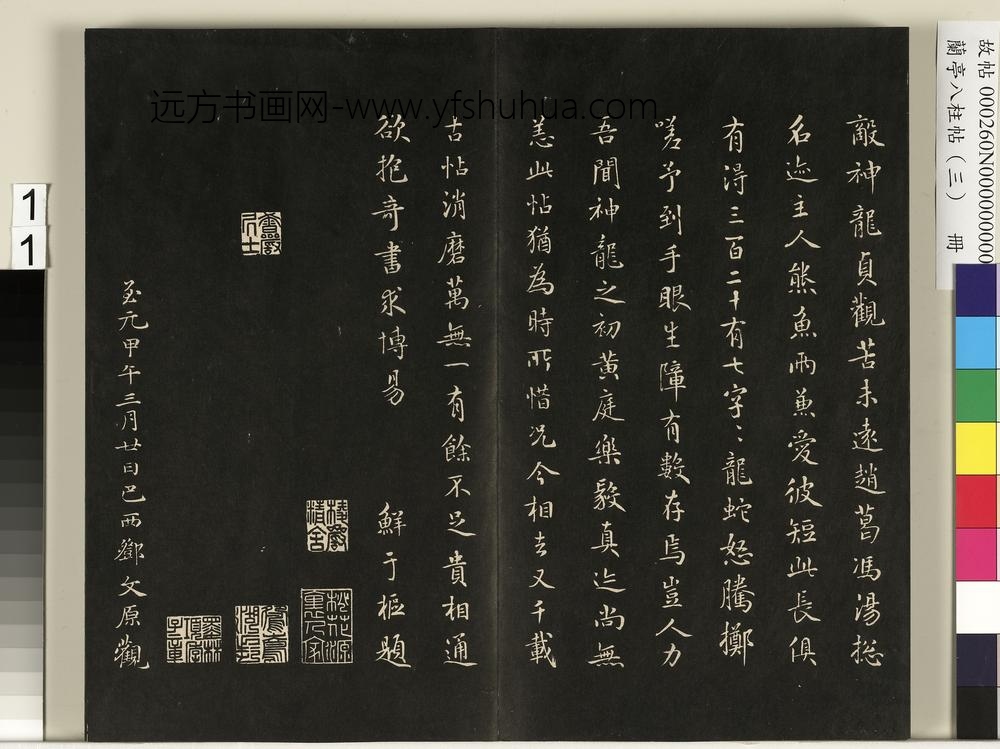 远方书画网-www.yfshuhua.com
故帖 000260N000000000
蘭亭八柱帖（三） 冊
11
敵神龍貞觀苦未遠趙葛馮湯㧾
名迹主人熊魚兩兼愛彼短此長俱
有淂三百二十有七字〻龍蛇怒騰擲
嗟予到手眼生障有數存焉豈人力
吾聞神龍之初黄庭樂毅真迹尚無
恙此帖猶為時所惜况今相去又千載
古帖消磨萬無一有餘不足貴相通
欲抱奇書求博易 鮮于樞題
至元甲午三月廿日巴西鄧文原觀